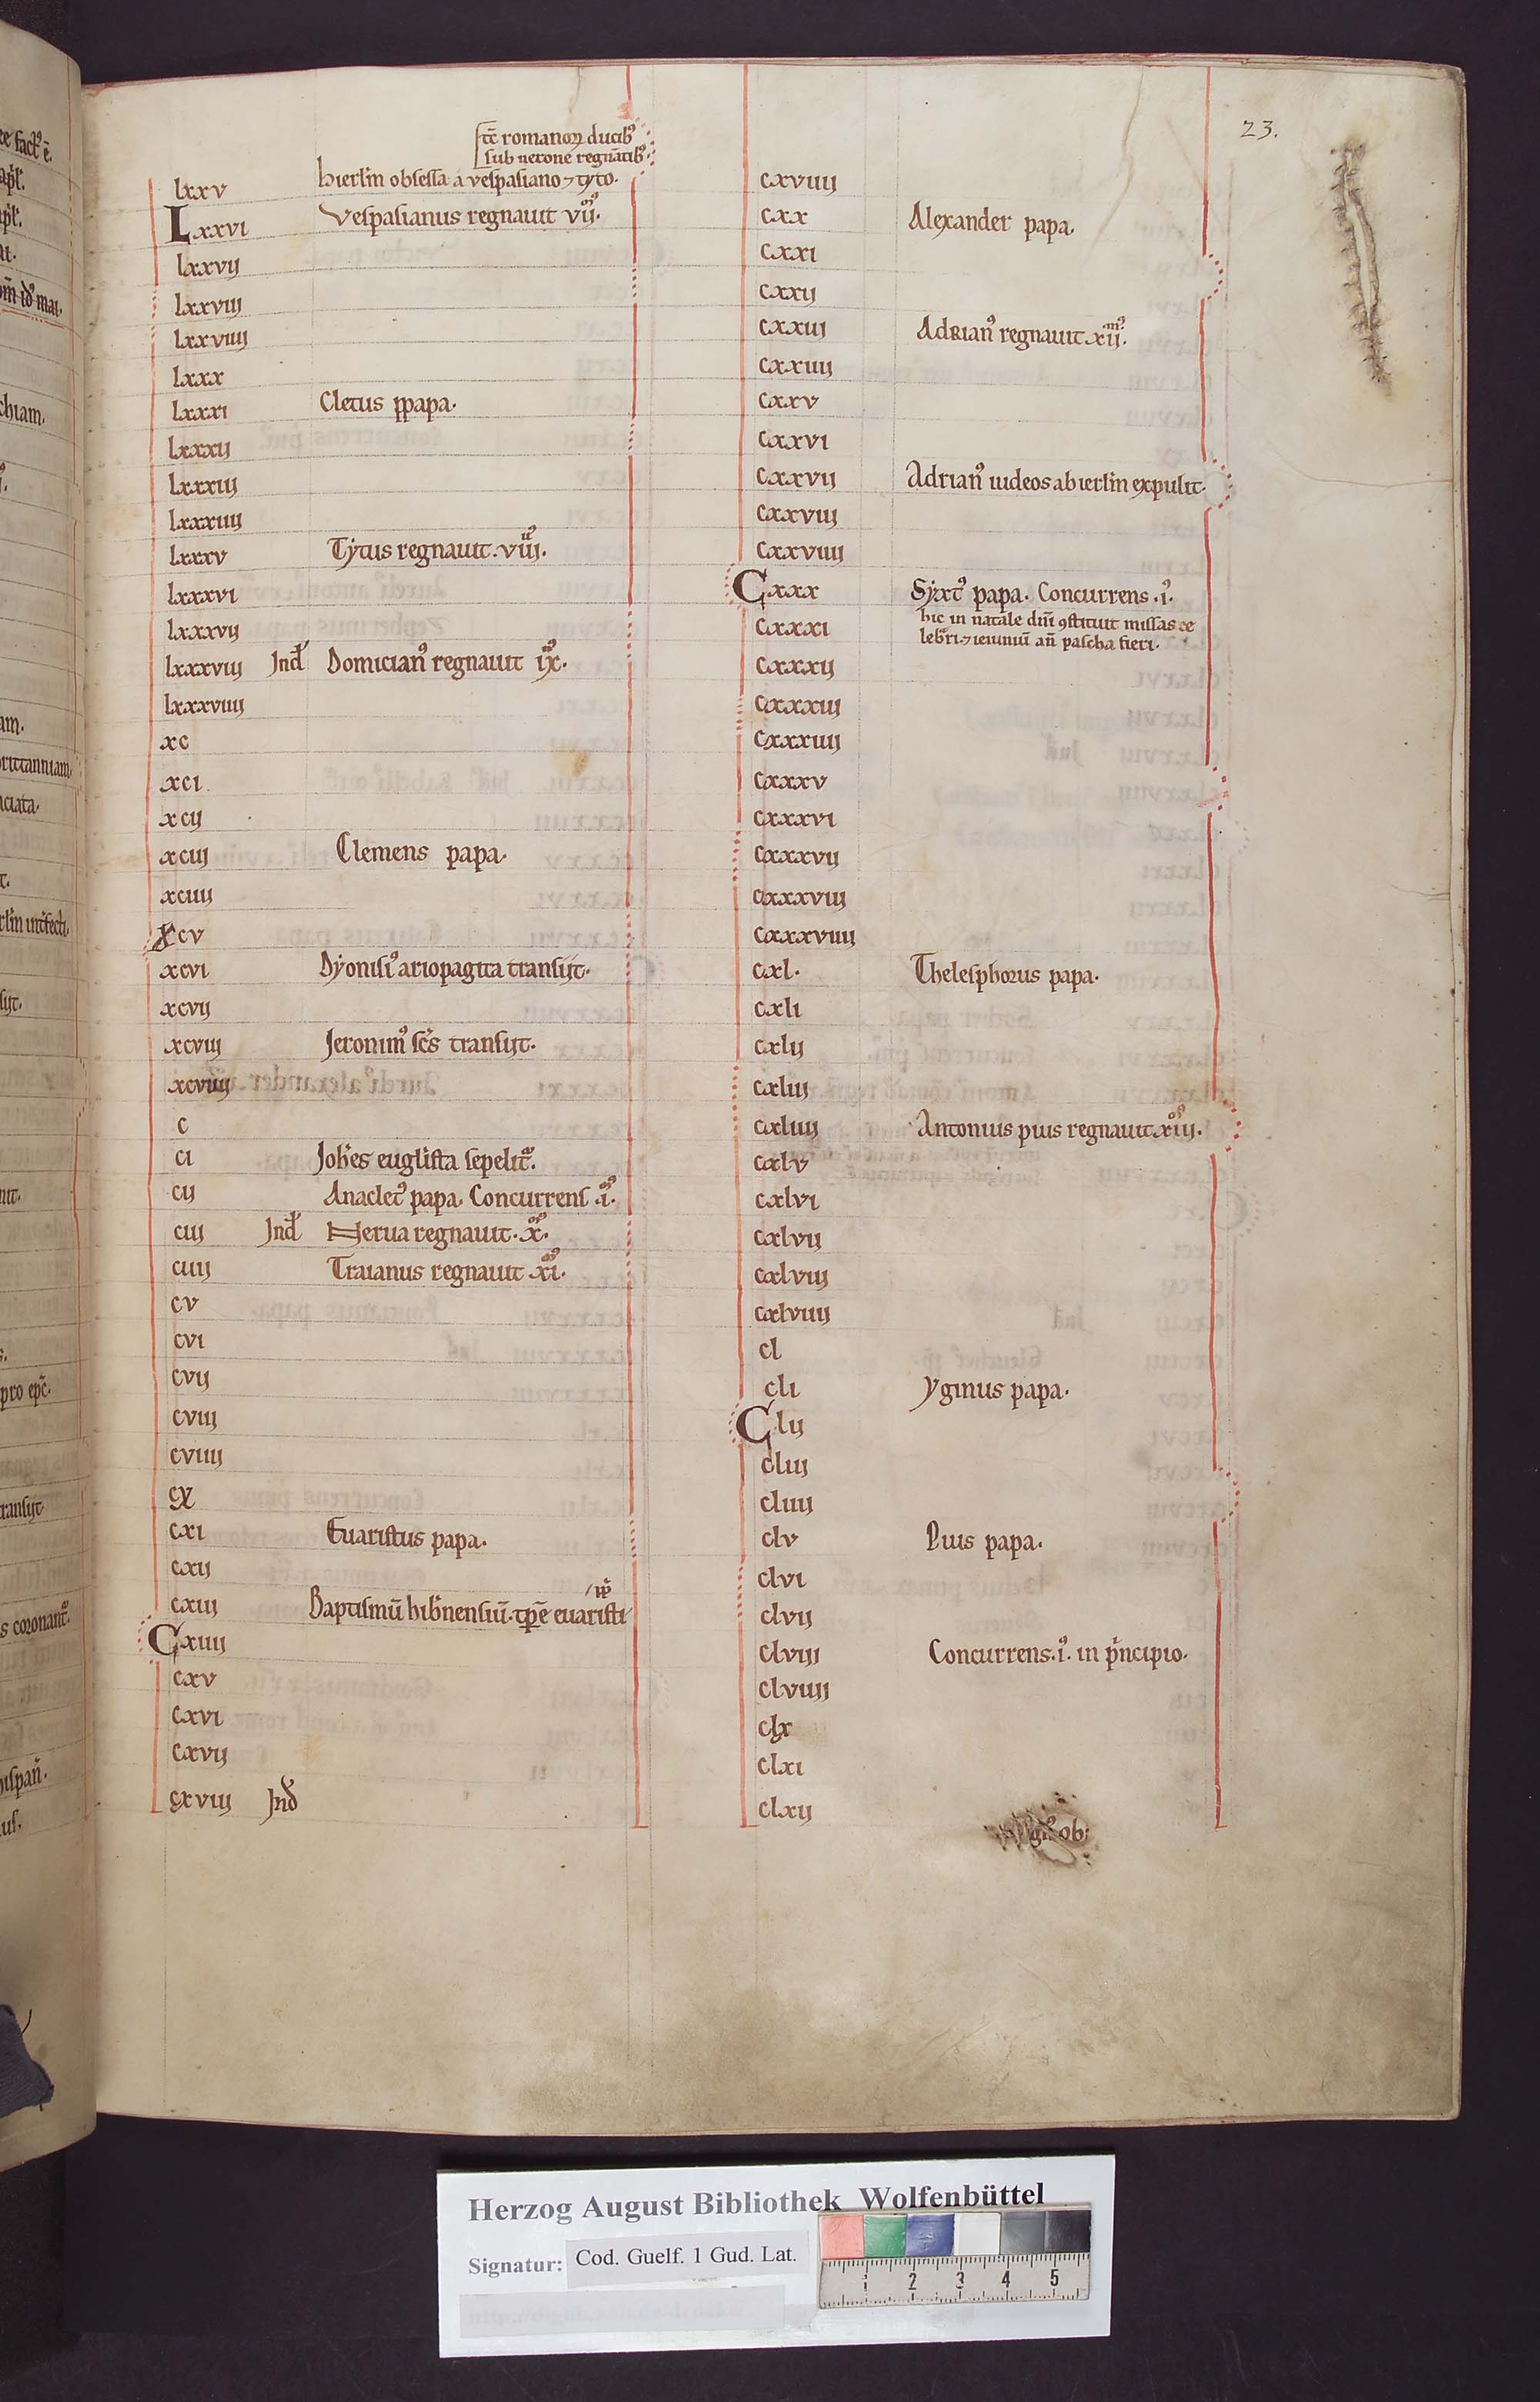 23.
tc̄ romanoꝝ ducibꝰ
sub nerone regnātibꝰ.
lxxv hierl̄m obsessa a vespasiano ⁊ tyto.
Lxxvi Vespasianus regnauit viiꝰ.
lxxvii
lxxviii
lxxviiii
lxxx
lxxxi Cletus papa.
lxxxii
lxxxiii
lxxxiiii
lxxxv Tytus regnauit. viiiꝰ.
lxxxvi
lxxxvii
lxxxviii Ind̄ Domicianꝰ regnauit ixꝰ.
lxxxviiii
xc
xci
xcii
xciii Clemens papa.
xciiii
Xcv
xcvi Dyonisiꝰ ariopagita transiit.
xcvii
xcviii Jeronimꝰ sc̄s transiit.
xcviiii
c
ci Joh̄es euglīsta sepelit᷑.
cii Anacletꝰ papa. Concurrens iꝰ.
ciii Ind̄ Nerua regnauit. xꝰ.
ciiii Traianus regnauit xiꝰ.
cv
cvi
cvii
cviii
cviiii
cx
cxi Euaristus papa.
cxii
cxiii Baptismū hib̄nensiū. tꝑe euaristi pp̄
Cxiiii
cxv
cxvi
cxvii
cxviii Ind̄
cxviiii
cxx Alexander papa.
cxxi
cxxii
cxxiii Adrianꝰ regnauit xiiꝰ.
cxxiiii
cxxv
cxxvi
cxxvii Adrianꝰ iudeos ab ierl̄m expulit.
cxxviii
cxxviiii
Cxxx Syxtꝰ papa. Concurrens .iꝰ.
hic in natale dn̄i ꝯstituit missas ce
cxxxi lebri ⁊ ieiuniū an̄ pascha fieri.
cxxxii
cxxxiii
cxxxiiii
cxxxv
cxxxvi
cxxxvii
cxxxviii
cxxxviiii
cxl. Thelesphorus papa.
cxli
cxlii
cxliii
cxliiii Antonius pius regnauit xiiiꝰ.
cxlv
cxlvi
cxlvii
cxlviii
cxlviiii
cl
cli Yginus papa.
Clii
cliii
cliiii
clv Pius papa.
clvi
clvii
clviii Concurrens. iꝰ. in p̓ncipio.
clviiii
clx
clxi
clxii
Herzog August Bibliothek Wolfenbüttel
Signatur: Cod. Guelf. 1 Gud. Lat.
1 2 3 4 5